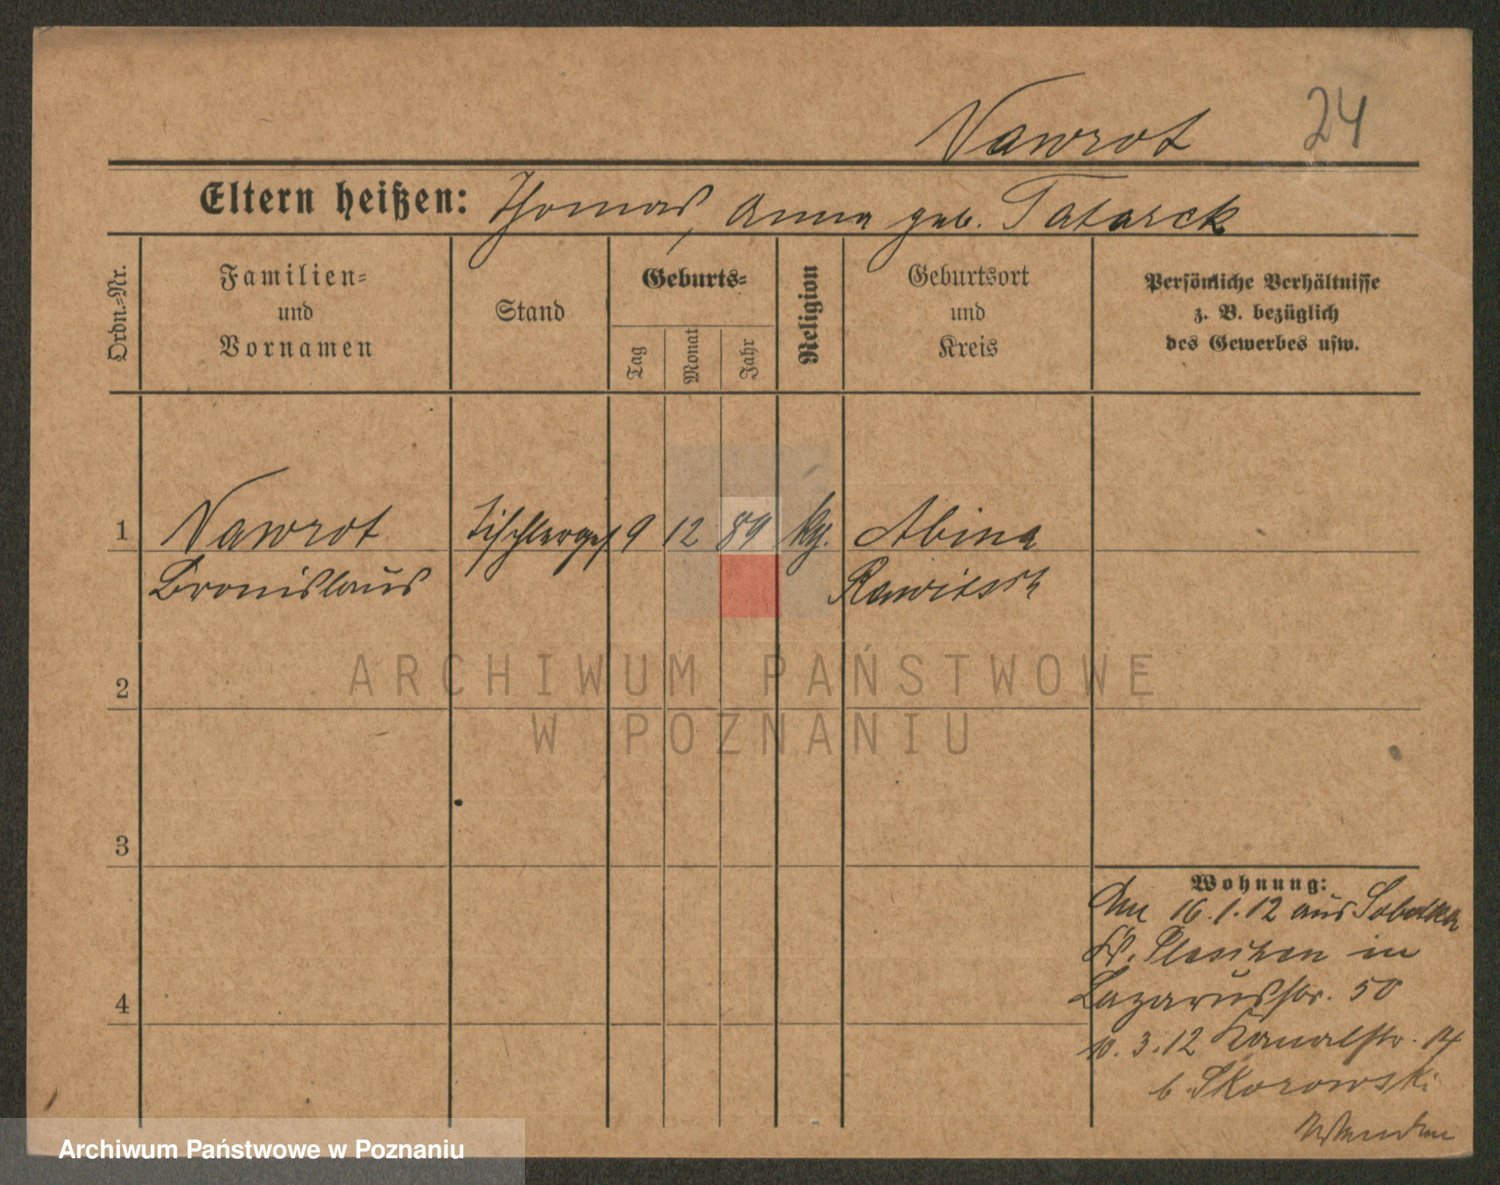 Nawrot 24
Eltern heißen: Thomas, Anna geb. Tatarek
Ordn.-Nr.
Familien-
und
Vornamen
Stand
Geburts-
Tag
Monat
Jahr
Religion
Geburtsort
und
Kreis
Persönliche Verhältnisse
z. B. bezüglich
des Gewerbes usw.
1 Nawrot Tischlerges 9 12 89 kg. Abina
Bronislaus Rawitsch
2
ARCHIWUM PAŃSTWOWE
W POZNANIU
3
Wohnung:
16.1.12 aus Sobotka
Kr. Pleschen in
Lazarusstr. 50
10.3.12 Kanalstr. 14
4
b. Skorowski
Archiwum Państwowe w Poznaniu